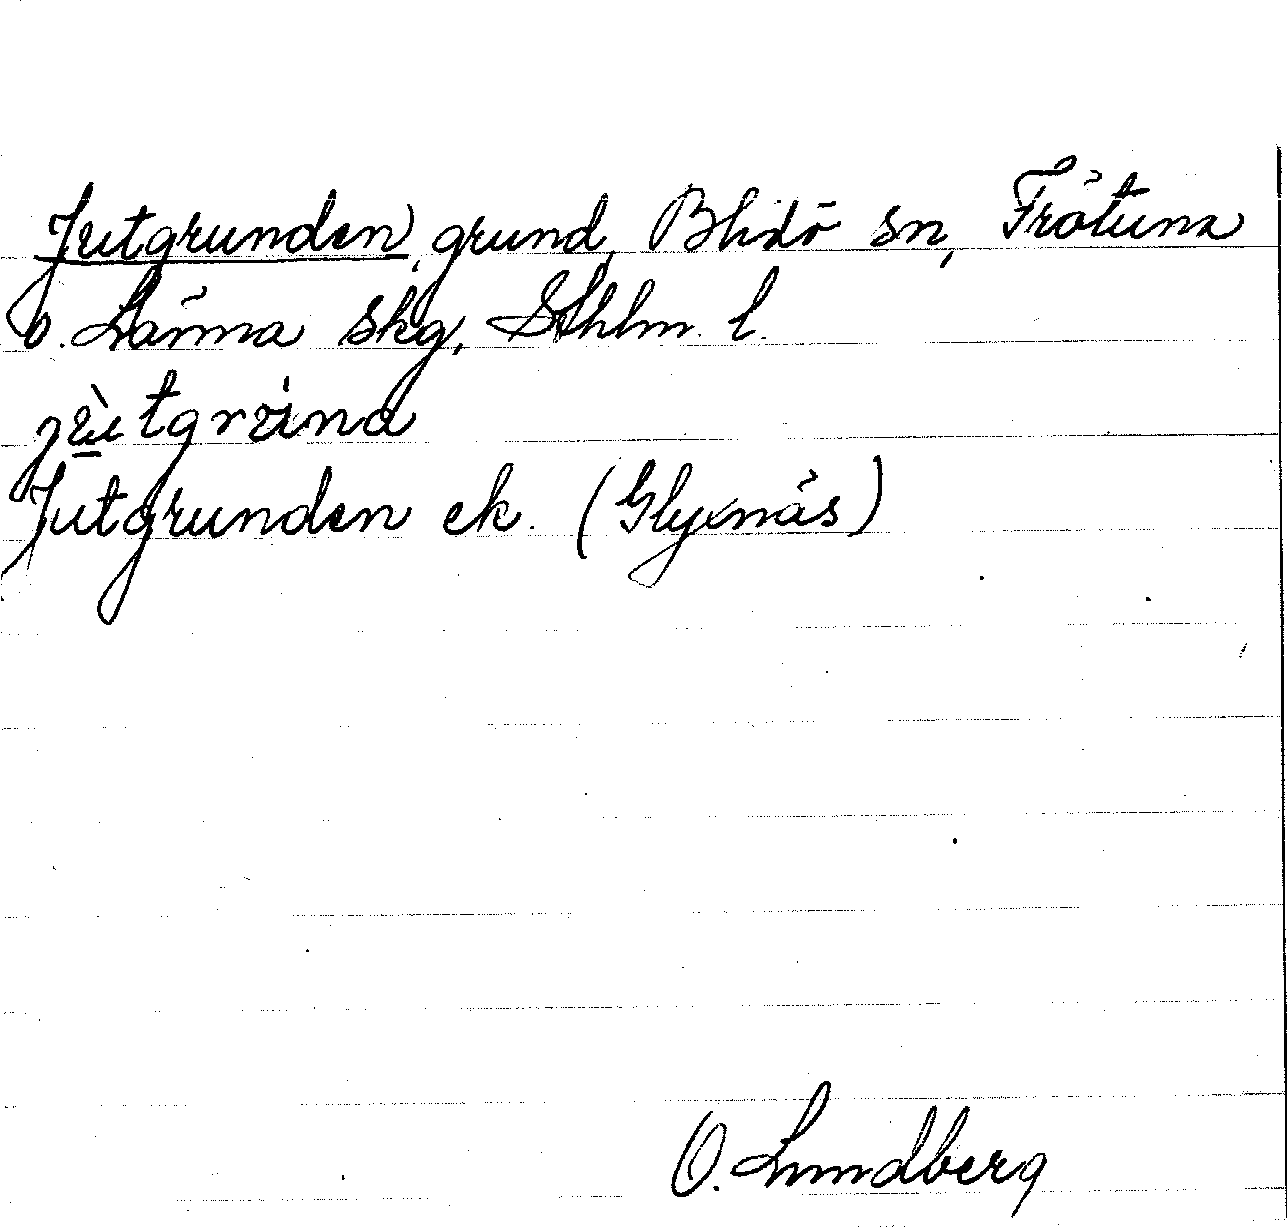 Jutgrunden, grund, Blidö sn, Frötuna
o. Länna skg, Sthlm. l.
Jutgrunden ek. (Glyxnäs)
O. Lundberg